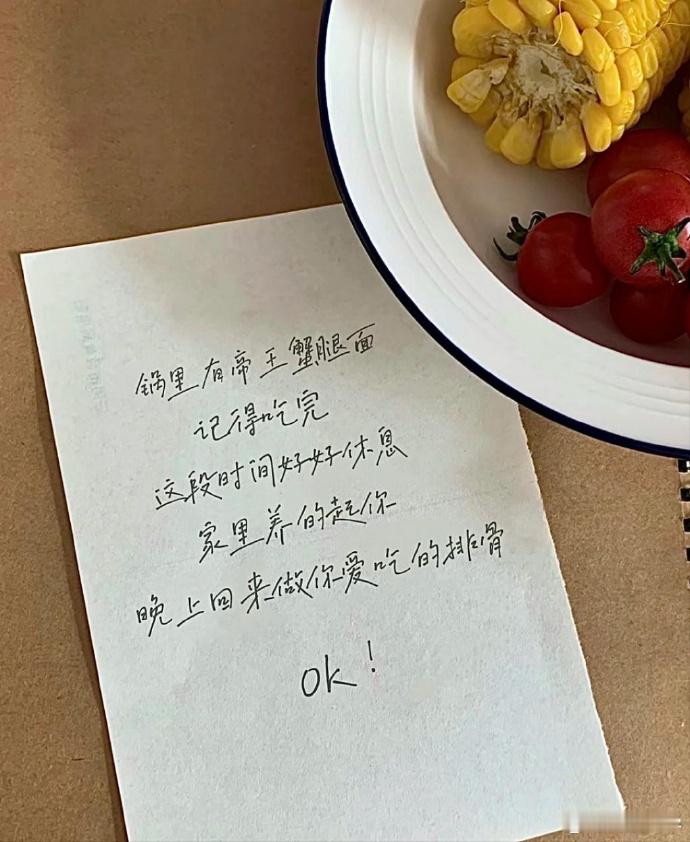 锅里有帝王蟹腿面
记得吃完
这段时间好好休息
家里养的起你
晚上回来做你爱吃的排骨
OK!